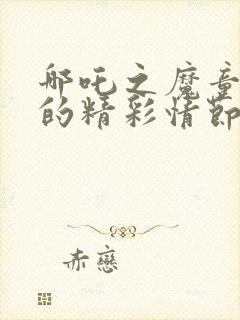 哪吒之魔童
的精彩情节
赤戀